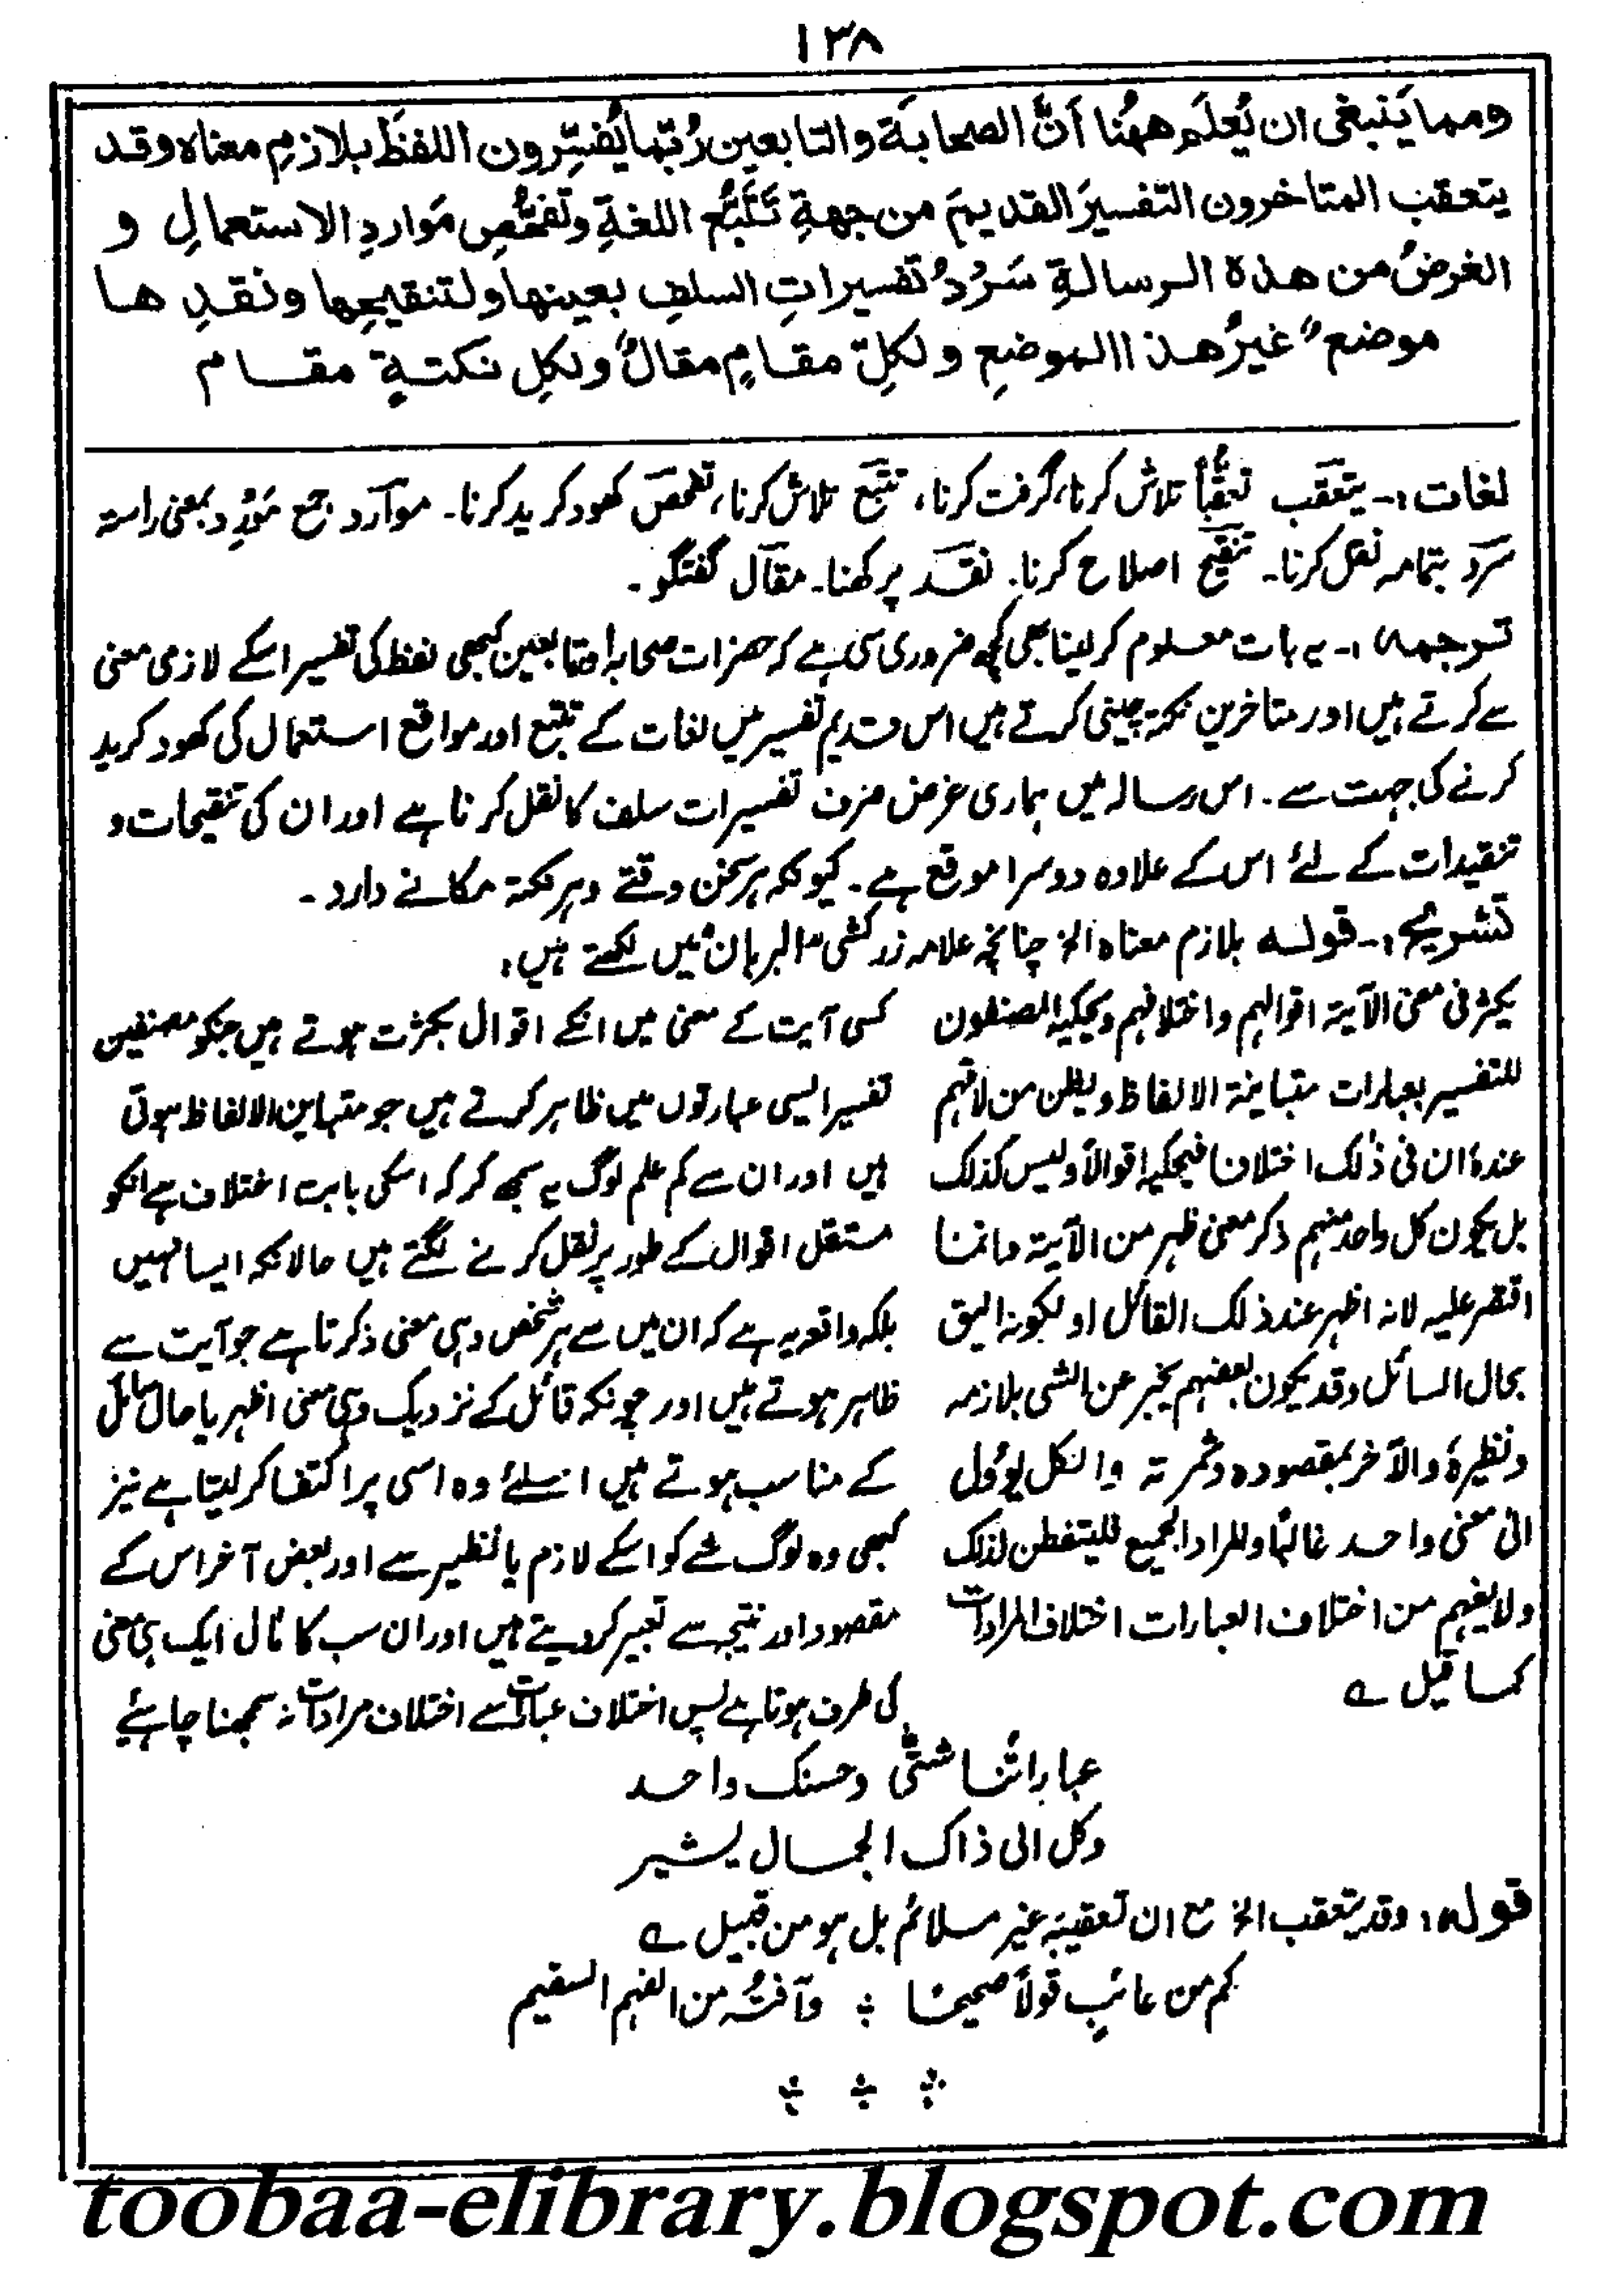 ١٣٨
ومما يَنبغی ان يُعلَم ههُنا أنَّ الصحابةَ والتابعين رُبّما يُفسِّرون اللفظَ بلازمِ معناه وقد
يتعقب المتاخرون التفسيرَ القديمَ من جهةِ تَتَبُّعِ اللغةِ وتفحُّصِ مَواردِ الاستعمالِ و
الغرضُ من هذه الرسالةِ سَرْدُ تفسيراتِ السلفِ بعينها ولتنقيحِها ونقدِ ها
موضعٌ غيرُ هذا الموضعِ ولكلِّ مقامٍ مقالٌ ولكلِ نكتةٍ مقام
لغات :۔ یتعقب تعقُّباً تلاش کرنا، گرفت کرنا، تتبع تلاش کرنا، تفحص کھود کرید کرنا۔ موارد جمع مَوْرِد بمعنی راستہ
سرد بتمامہ نقل کرنا۔ تنقیح اصلاح کرنا۔ نقد پرکھنا۔ مقال گفتگو۔
ترجمہ :۔ یہ بات معلوم کر لینا بھی کچھ ضروری سی ہے کہ حضرات صحابہ وتابعین کبھی لفظ کی تفسیر اسکے لازمی معنی
سے کرتے ہیں اور متاخرین نکتہ چینی کرتے ہیں اس قدیم تفسیر میں لغات کے تتبع اور مواقع استعمال کی کھود کرید
کرنے کی جہت سے۔ اس رسالہ میں ہماری غرض صرف تفسیرات سلف کا نقل کرنا ہے اور ان کی تنقیحات و
تنقیدات کے لئے اس کے علاوہ دوسرا موقع ہے۔ کیونکہ ہر سخن وقتے وہر نکتہ مکانے دارد۔
تشریح :۔ قولہ بلازم معناہ الخ چنانچہ علامہ زرکشی "البرہان" میں لکھتے ہیں :
یکثر فی معنی الآیۃ اقوالہم واختلافہم ویحکیہ المصنفون
للتفسیر بعبارات متباینۃ الالفاظ ویظن من لا فہم
عندہ ان فی ذٰلک اختلافا فیحکیہ اقوالاً ولیس کذلک
بل یکون کل واحد منہم ذکر معنی ظہر من الآیۃ وانما
اقتصر علیہ لانہ اظہر عند ذلک القائل او لکونہ الیق
بحال السائل وقد یکون بعضہم یخبر عن الشی بلازمہ
ونظیرہٖ والآخر بمقصودہ وثمرتہ والکل یوٴول
الی معنی واحد غالباً والمراد الجمیع فلیتفطن لذلک
ولا یفہم من اختلاف العبارات اختلاف المرادات
کما قیل ے
کسی آیت کے معنی میں انکے اقوال بکثرت ہوتے ہیں جنکو مصنفین
تفسیر ایسی عبارتوں میں ظاہر کرتے ہیں جو متباین الالفاظ ہوتی
ہیں اور ان سے کم علم لوگ یہ سمجھ کر کہ اسکی بابت اختلاف ہے انکو
مستقل اقوال کے طور پر نقل کرنے لگتے ہیں حالانکہ ایسا نہیں
بلکہ واقعہ یہ ہے کہ ان میں سے ہر شخص وہی معنی ذکر کرتا ہے جو آیت سے
ظاہر ہوتے ہیں اور چونکہ قائل کے نزدیک وہی معنی اظہر یا حال سائل
کے مناسب ہوتے ہیں اسلئے وہ اسی پر اکتفا کر لیتا ہے نیز
کبھی وہ لوگ شے کو اسکے لازم یا نظیر سے اور بعض آخر اس کے
مقصود اور نتیجہ سے تعبیر کردیتے ہیں اور ان سب کا مآل ایک ہی معنی
کی طرف ہوتا ہے پس اختلاف عبارات سے اختلاف مرادات نہ سمجھنا چاہئے
عباراتُنا شتّٰی وحسنک واحد
وکل الی ذاک الجمال یشیر
قولہ : وقد یتعقب الخ مع ان تعقیبہ غیر ملائم بل ہو من قبیل ے
کم من عائبٍ قولاً صحیحًا ؞ وآفتُہ من الفہم السقیم
؞ ؞ ؞
toobaa-elibrary.blogspot.com